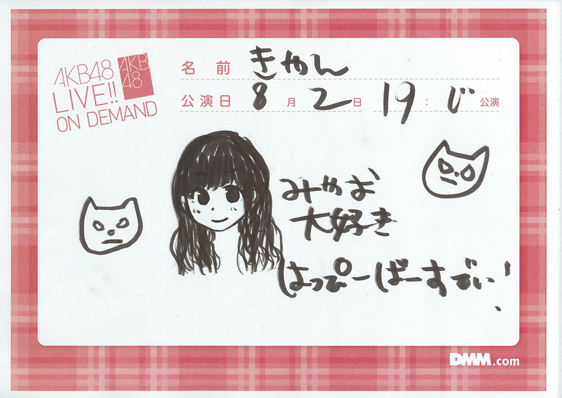 AKB48
LIVE!!
ON DEMAND
AKB
48
名前 きゃん
公演日 8月2日 19:じ 公演
みゃお
大好き
はっぴーばーすでい!
DMM.com